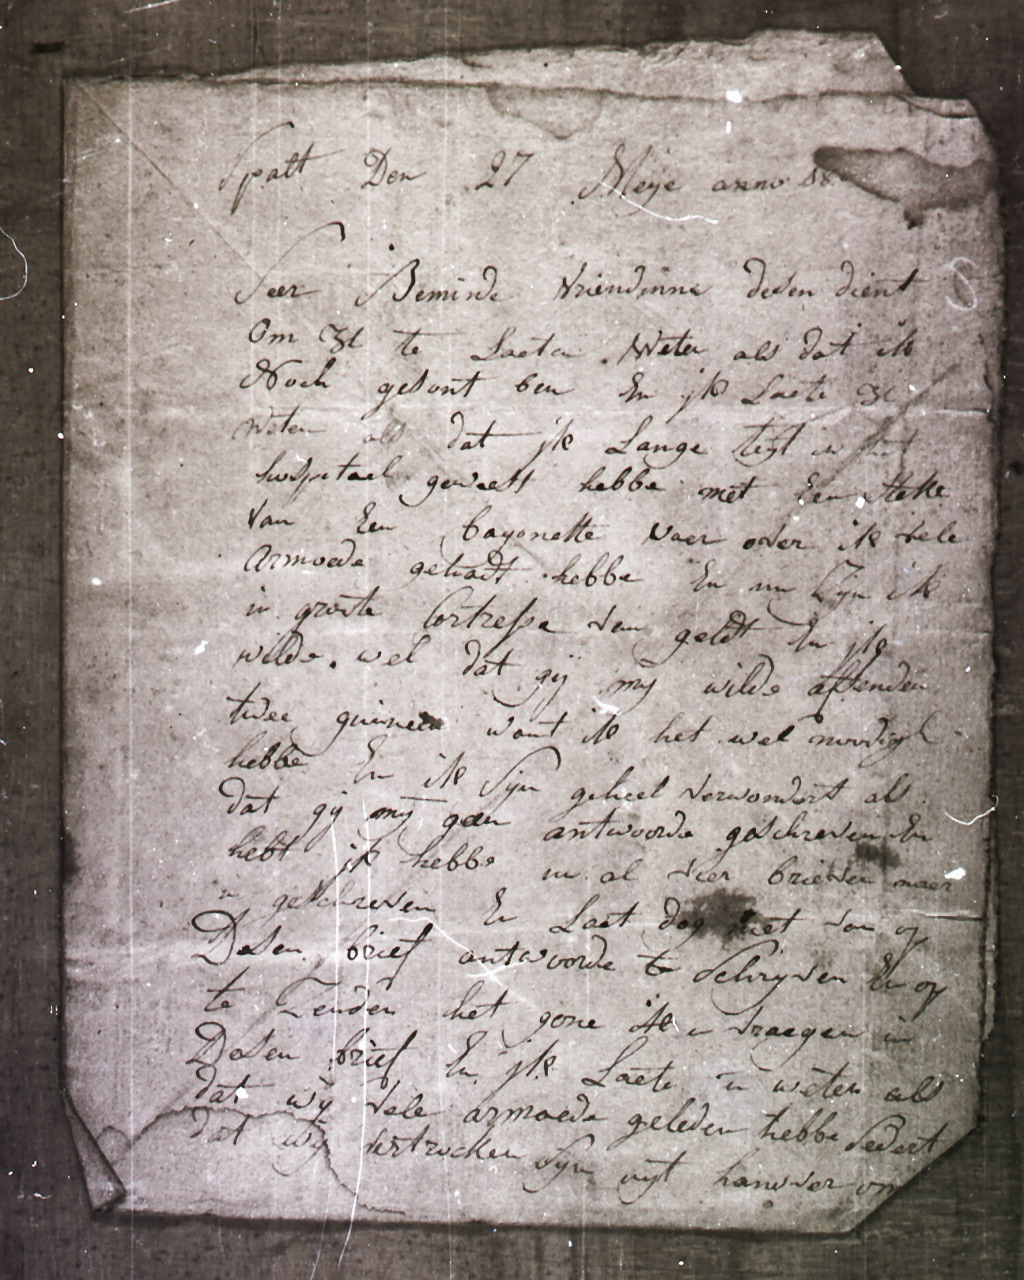 Spatt Den 27 Meije anno 18
Seer Beminde Vriendinne desen dient
Om Ul te Laeten Weten als dat ik
Noch gesont ben En jk Laete Ul
weten als dat jk Lange teijt in het
hospitael geweest hebbe met Een steke
van Een bayonette waer over ik vele
armoede gehadt hebbe En nu Zijn ik
in groote Cortresse van geldt En jk
wilde wel dat gij mij wilde afsenden
twee guineen want ik het wel noodigh
hebbe En ik Sijn geheel verwondert als
dat gij mij geen antwoorde geschreven En
hebt jk hebbe nu al vier brieven naer
u geschreven En Laet dog niet van op
Desen brief antwoorde te schrijven En op
te Zenden het gone ik u vraegen in
Desen brief En jk Laete u weten als
dat wij vele armoede geleden hebbe Sedert
dat wij vertrocken Sijn uijt hanover om